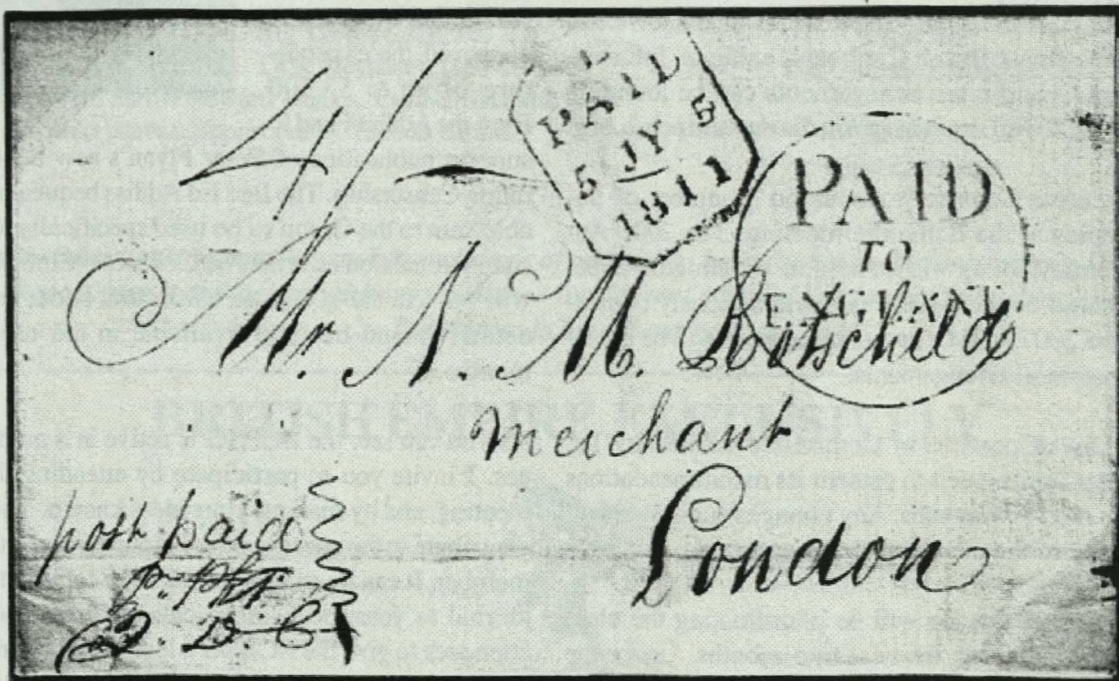 4/-
PAID
5 JY 5
1811
PAID
TO
ENGLAND
Mr. N. M. Rotschild
Merchant
London
post paid